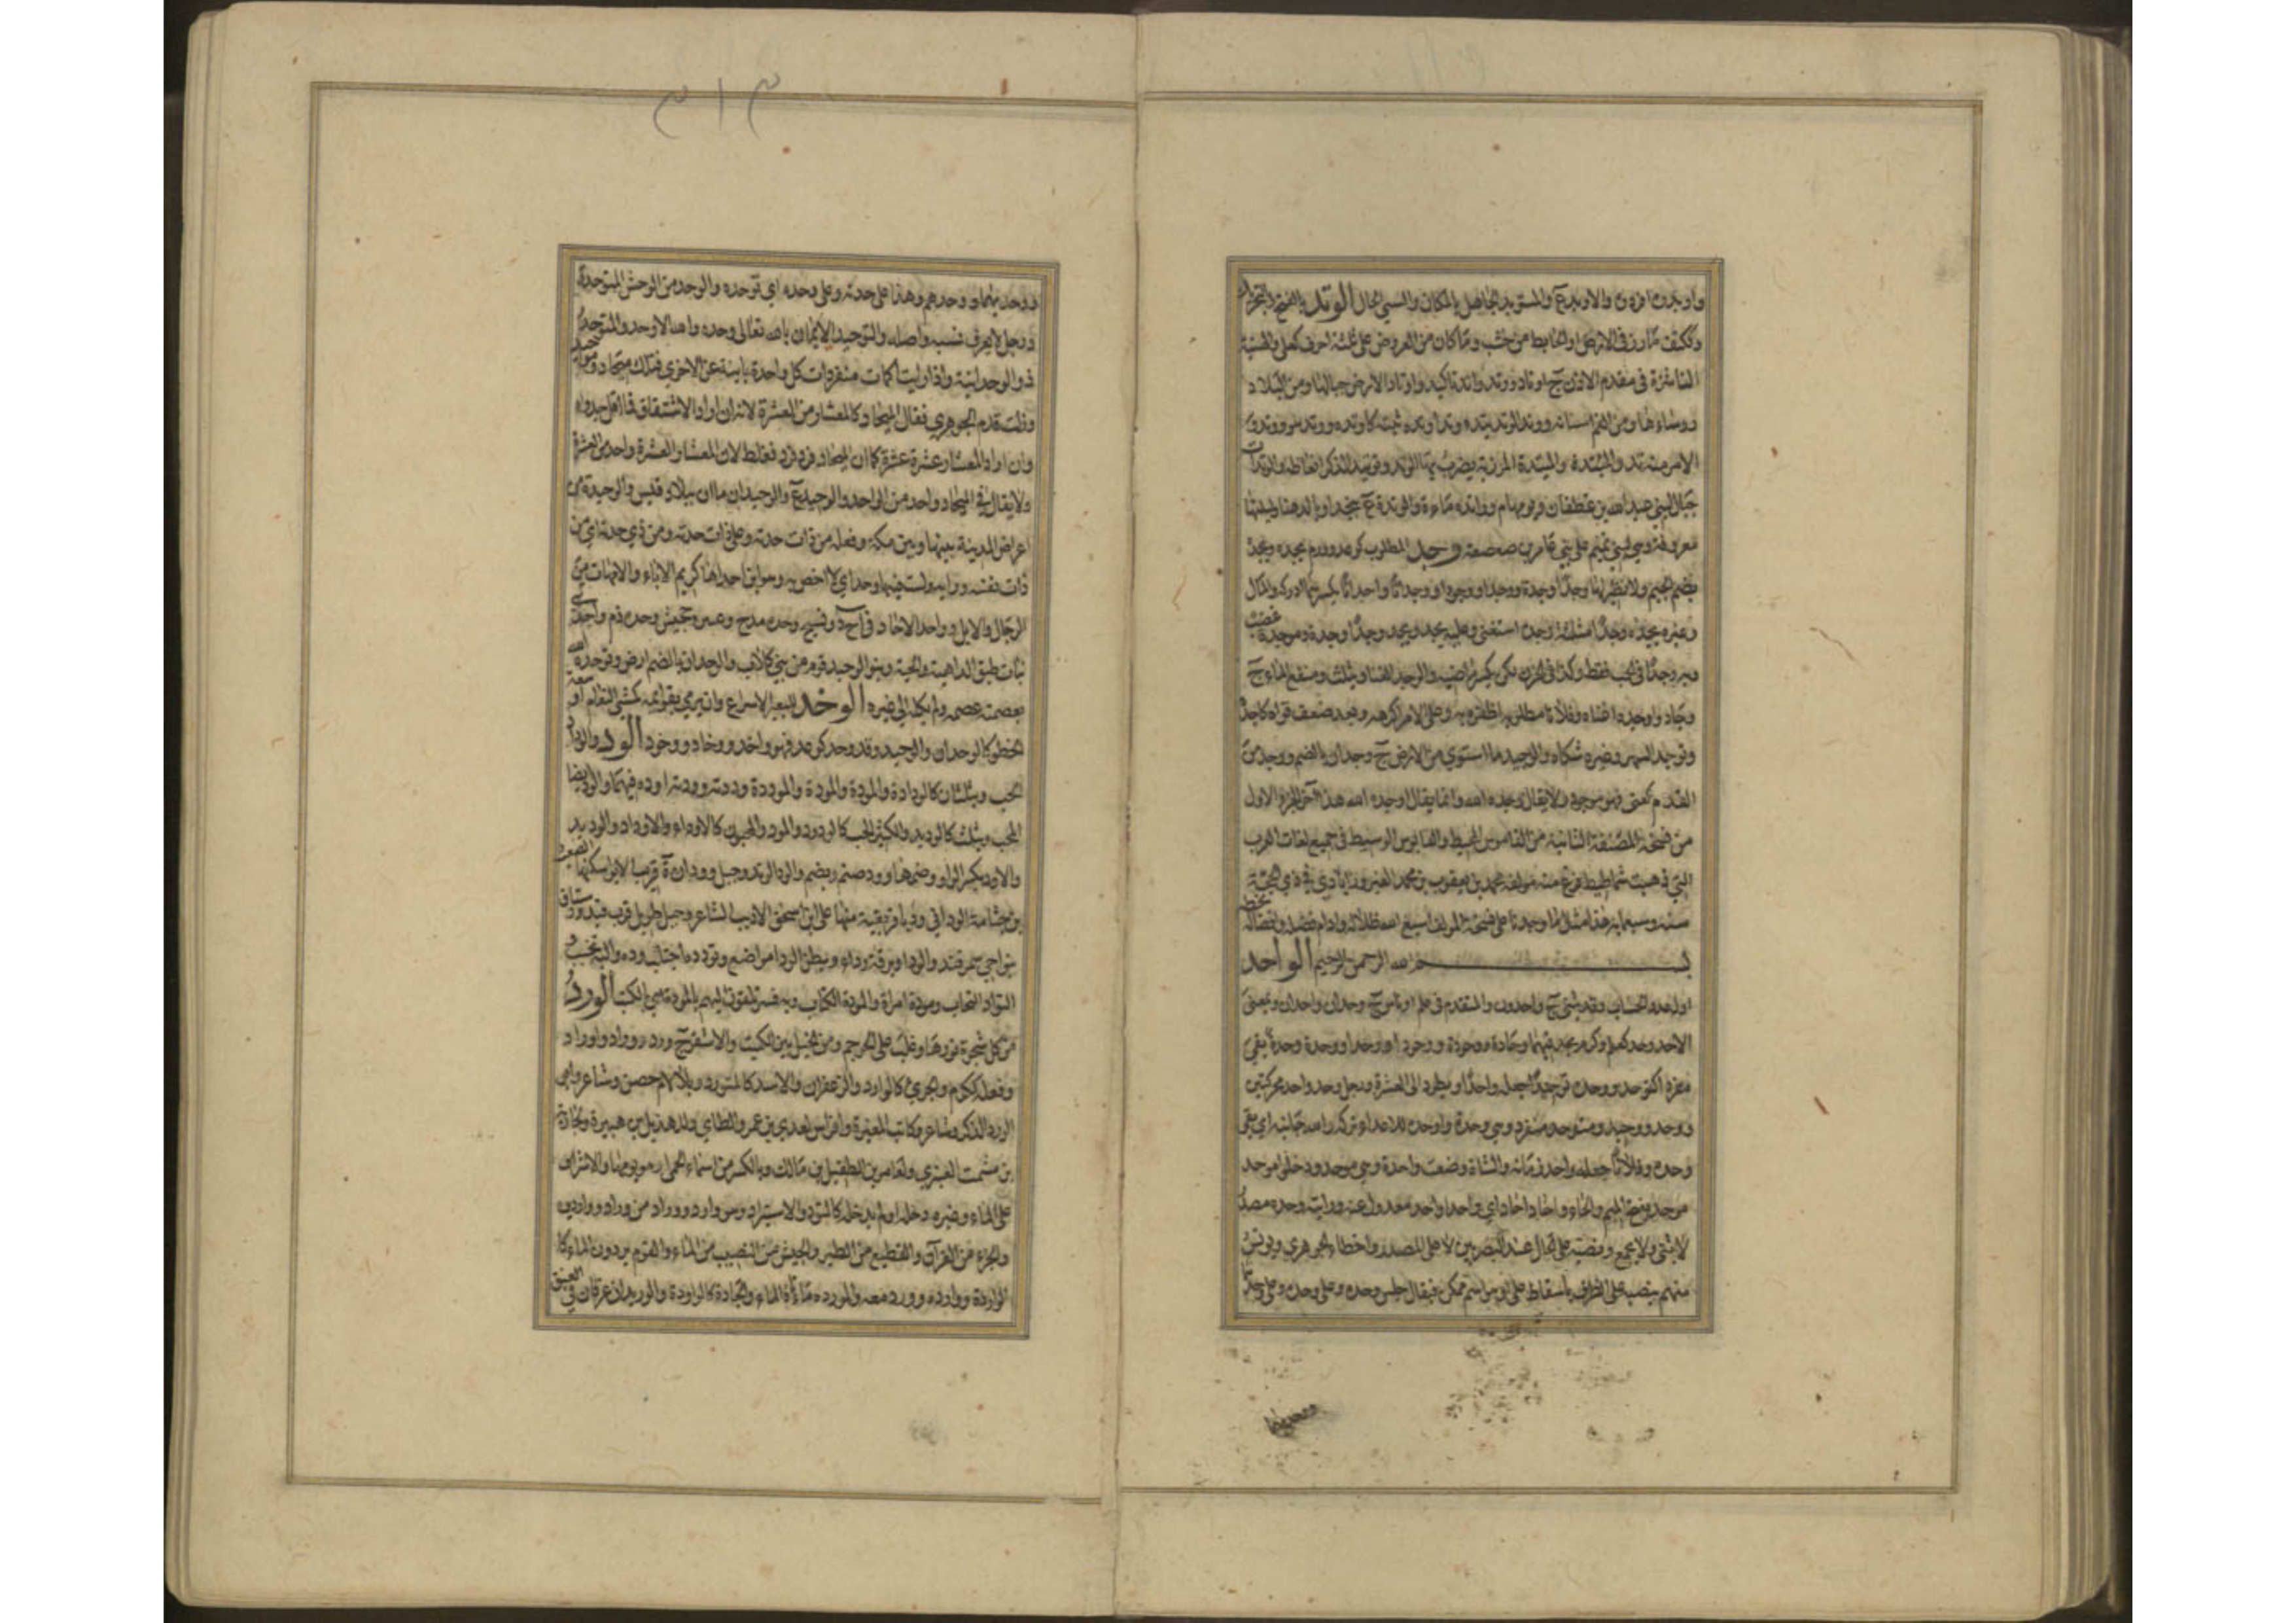 وككتف مارز فى الارض او الحايط من خشب وما كان من العروض على ثلثة احرف كعلى والهنية
الناشزة فى مقدم الاذن ج اوتاد ووتد واتد تاكيد واوتاد الارض جبالها ومن البلاد
روساءها ومن الفم اسنانه ووتد الوتد يتده وتدا وتده ثبته كاوتده ووتد هو ووتد و
الامر منه تد والميتدة والميتدة المرزبة يضرب بها الوتد وتوتيد الذكر انعاظه والوتدات
جبال لبنى عبد الله بن غطفان ويومها م وواتده ماءة والوتدة ع بنجد او بالدهنا وليلتها
معروفة وهي لبنى تميم على بني عامر بن صعصعة وجد المطلوب كوعد وورم يجده ويجد
بضم الجيم ولا نظير لها وجدا وجدة ووجدا ووجودا ووجدانا واجدانا بكسرهما ادركه والمال
وغيره يجده وجدا مثلثة وجدة استغنى وعليه يجد ويجد وجدا وجدة وموجدة غضب
وبه وجدا فى الحب فقط وكذا فى الحزن لكن بكسر ماضيه والوجد الغنا ويثلث ومنقع الماء ج
وجاد واوجده اغناه وفلانا مطلوبه اظفره به وعلى الامر اكرهه وبعد ضعف قواه كاجد
وتوجد السهر وغيره شكاه والوجيد ما استوي من الارض ج وجدان بالضم ووجد من
العدم كعنى فهو موجود ولا يقال وجده الله وانما يقال اوجده الله هذا آخر الجزء الاول
من نسخة المصنفة الثانية من القاموس المحيط والقابوس الوسيط فى جميع لغات العرب
التي ذهبت شماطيط فرغ منه مولفه محمد بن يعقوب بن محمد الفيروزابادي في ذي الحجة
سنه وسبعمايه هذا مثل ما وجدنا على نسخة المولف اسبغ الله ظلاله وادام فضله وافضاله
بسم الله الرحمن الرحيم الواحد
اول عدد الحساب وقد يثنى ج واحدون والمتقدم فى علم او باس ج وحدان واحدان وبمعنى
الاحد وحد كعلم وكرم يحد فيهما وحادة ووحودة ووحودا ووحدا ووحدة وحدة بقى
مفردا كتوحد ووحده توحيدا جعله واحدا ويطرد الى العشرة ورجل وحد واحد محركتين
ووحد ووحيد ومتوحد منفرد وهي وحدة واوحده للاعداء تركه والله جانبه اي بقى
وحده وفلانا جعله واحد زمانه والشاة وضعت واحدة وهي موحد ودخلوا موحد
موحد بفتح الميم والحاء واحاد احاد اي واحدا واحدا معدول عنه ورايته وحده مصدر
لا يثنى ولا يجمع ونصبه على الحال عند البصريين لا على المصدر واخطا الجوهري ويونس
منهم ينصبه على الظرف باسقاط على او هو اسم ممكن فيقال جلس وحده وعلى وحده وعلى وحدهما
ووحديهما
٣١٣
ووحديهما ووحدهم وهذا على حدته وعلى وحده اي توحده والوحد من الوحش المتوحد
ورجل لا يعرف نسبه واصله والتوحيد الايمان بالله تعالى وحده والله الاوحد والمتوحد
ذو الوحدانية واذا رايت اكمات منفردات كل واحدة باينة عن الاخري فتلك ميحاد ومواحيد
وزلت قدم الجوهري فقال الميحاد كالمعشار من العشرة لانه ان اراد الاشتقاق فما اقل جدواه
وان اراد المعشار عشرة عشرة كما ان الميحاد فرد فرد فغلط لان المعشار والعشرة واحد من العشرة
ولا يقال في الميحاد واحد من الواحد والوحيد ع والوحيدان ماان ببلاد قيس والوحيدة من
اعراض المدينة بينها وبين مكة وفعله من ذات حدته وعلى ذات حدته ومن ذي حدته اي من
ذات نفسه ورايه ولست فيها باوحد اي لا اخص به وهو ابن احداها كريم الاباء والامهات من
الرجال والابل وواحد الاحاد فى ا ح د ونسيج وحده مدح وعيير وجحيش وحده ذم واحدى
بنات طبق الداهية والحية وبنو الوحيد قوم من بني كلاب والوحدان بالضم ارض وتوحده الله
بعصمته عصمه ولم يكله الي غيره الوخد للبعير الاسراع وان يرمي بقوايمه كمشي النعام او سعة
الخطو كالوخدان والوخيد وقد وخد كوعد فهو واخد ووخاد ووخود الود والوداد
الحب ويثلثان كالودادة والمودة والمودة والموددة ودته ووددته اوده فيهما والود ايضا
المحب ويثلث كالوديد والكثير الحب كالودود والمود والمحبون كالاوداء والاوداد والوديد
والاود بكسر الواو وضمها وود صنم ويضم والود الوتد وجبل وودان ة قرب الابوا سكنها الصعب
بن جثامة الوداني ود بافريقية منها علي بن اسحق الاديب الشاعر وجبل طويل قرب فيد ورستاق
بنواحي سمرقند والودا وبرقة وداء وبطن الودا مواضع وتودده اجتلب وده واليه تحبب و
التواد التحاب ومودة امراة والمودة الكتاب وبه فسر تلقون اليهم بالمودة اي بالكتب الورد
من كل شجرة نورها وغلب على الحوجم ومن الخيل بين الكميت والاشقر ج ورد ووراد واوراد
وفعله ككرم والجريء كالوارد والزعفران والاسد كالمتورد وبلا لام حصن وشاعر وابو
الورد الذكر وشاعر وكاتب المغيرة وافراس لعدي بن عمرو الطاي وللهذيل بن هبيرة ولحارثة
بن مشمت العنبري ولعامر بن الطفيل بن مالك وبالكسر من اسماء الحمى او هو يومها والاشراف
على الماء وغيره دخله او لم يدخله كالتورد والاستيراد وهو وارد ووراد من وراد وواردين
والجزء من القرآن والقطيع من الطير والجيش من النصيب من الماء والقوم يردون الماء كا
لواردة وواردة وورد معه والموردة ماتاة الماء والجادة كالواردة والوريدان عرقان في العنق